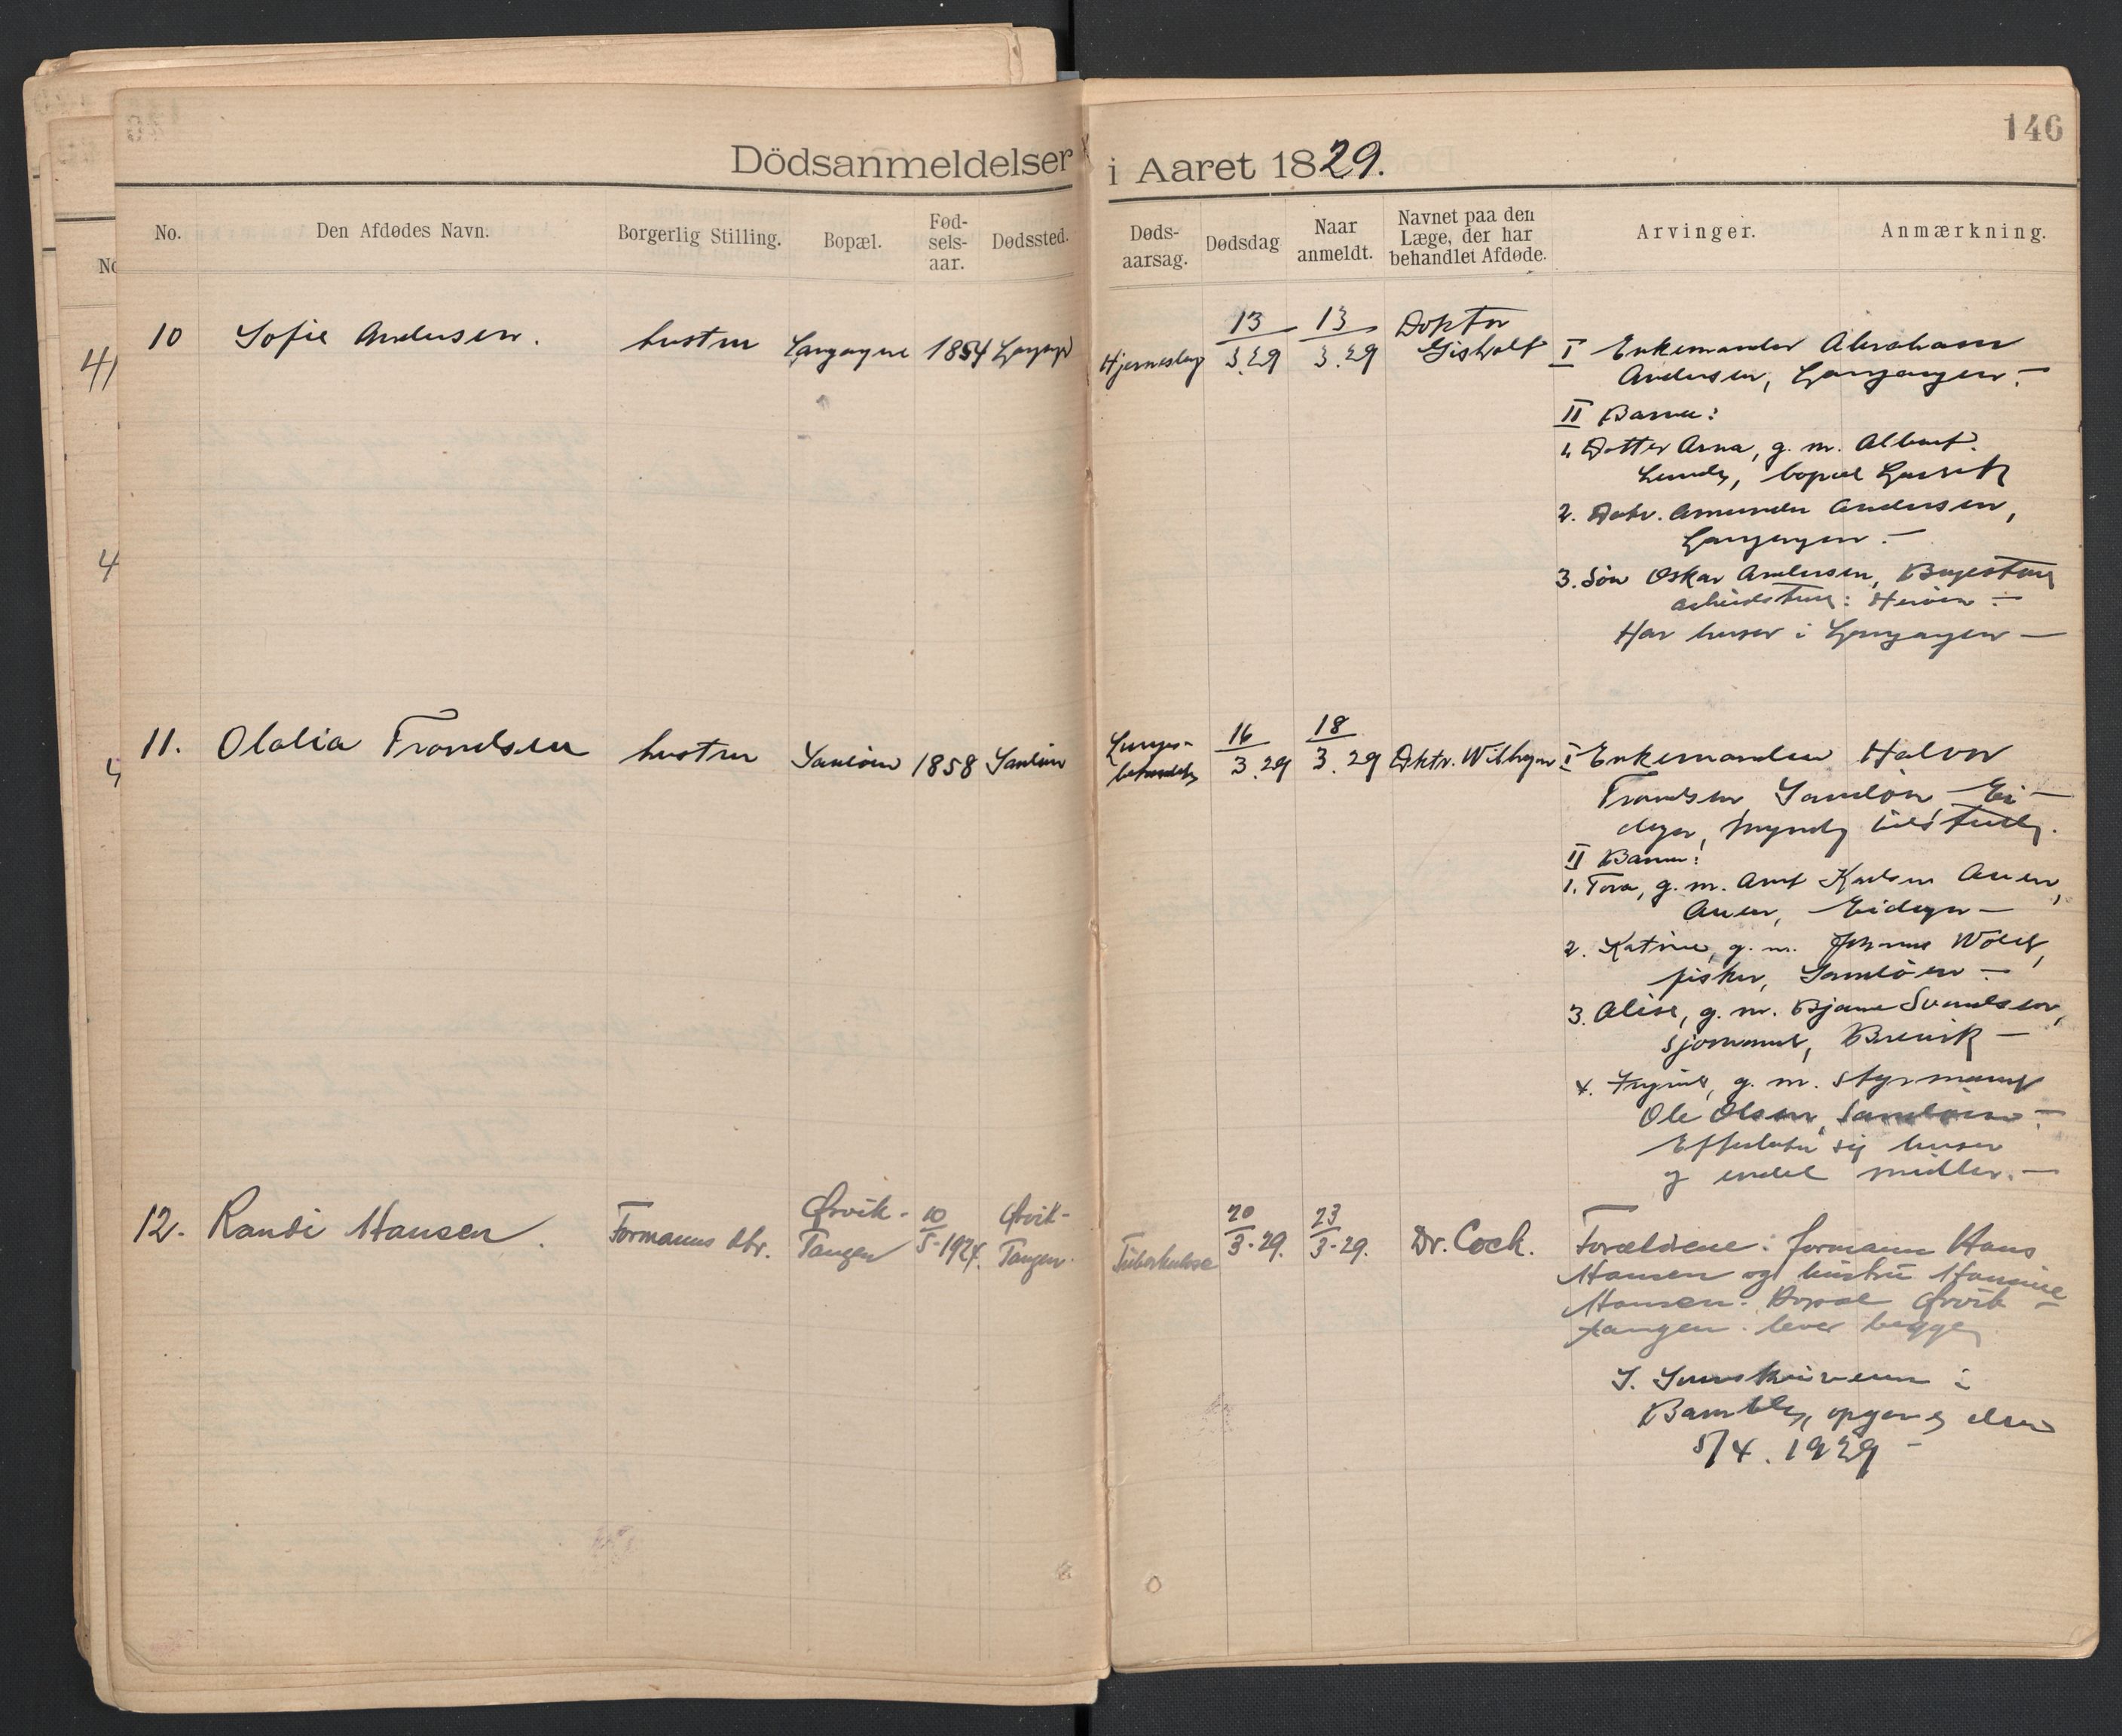 146
Dödsanmeldelser i Aaret 1829.
No.
Den Afdødes Navn.
Borgerlig Stilling.
Bopæl.
Fød-
sels-
aar.
Dødssted.
Døds-
aarsag.
Dødsdag
Naar
anmeldt.
Navnet paa den
Læge, der har
behandlet Afdøde.
Arvinger.
Anmærkning.
10 Sofie Andersen. hustru Langangen 1854 Langang
Hjerneslag 13/3.29 13/3.29 Doktor
Gisholt
I Enkemanden Abraham
Andersen, Langangen.—
II Barn:
1. Datter Anna, g. m. Albert
Lund, bopæl
2. Datr. Andersen,
Langangen.—
3. Søn Oskar Andersen,
Herøen —
Har huser i Langangen —
11. Olalia Frandsen hustru Sandøen 1858 Sandøen
Lunge-
betændelse 16/3.29 18/3.29 Dktr.
I Enkemanden Halvor
Frandsen Sandøen, Ei-
danger, myndig
II Barn:
1. Tora, g. m. Karlsen Auen,
Auen, Eidanger —
2. Katrine, g. m. Johannes
fisker, Sandøen —
3. Alise, g. m. Bjarne Svendsen,
sjømand, Brevik —
4. g. m. styrmand
Ole Olsen, Sandøen —
Efterlater sig huser
og endel midler. —
12. Randi Hansen. Formanns dtr. Ørvik-
Tangen 10/5-1924. Ørvik-
Tangen.
Tuberkulose 20/3-29. 23/3-29. Dr. Cock.
Forældrene: formann Hans
Hansen og hustru Hansine
Hansen. Bopæl Ørvik-
tangen. lever begge
S. Sorenskriveren i
Bamble, opgave den
5/4. 1929 -